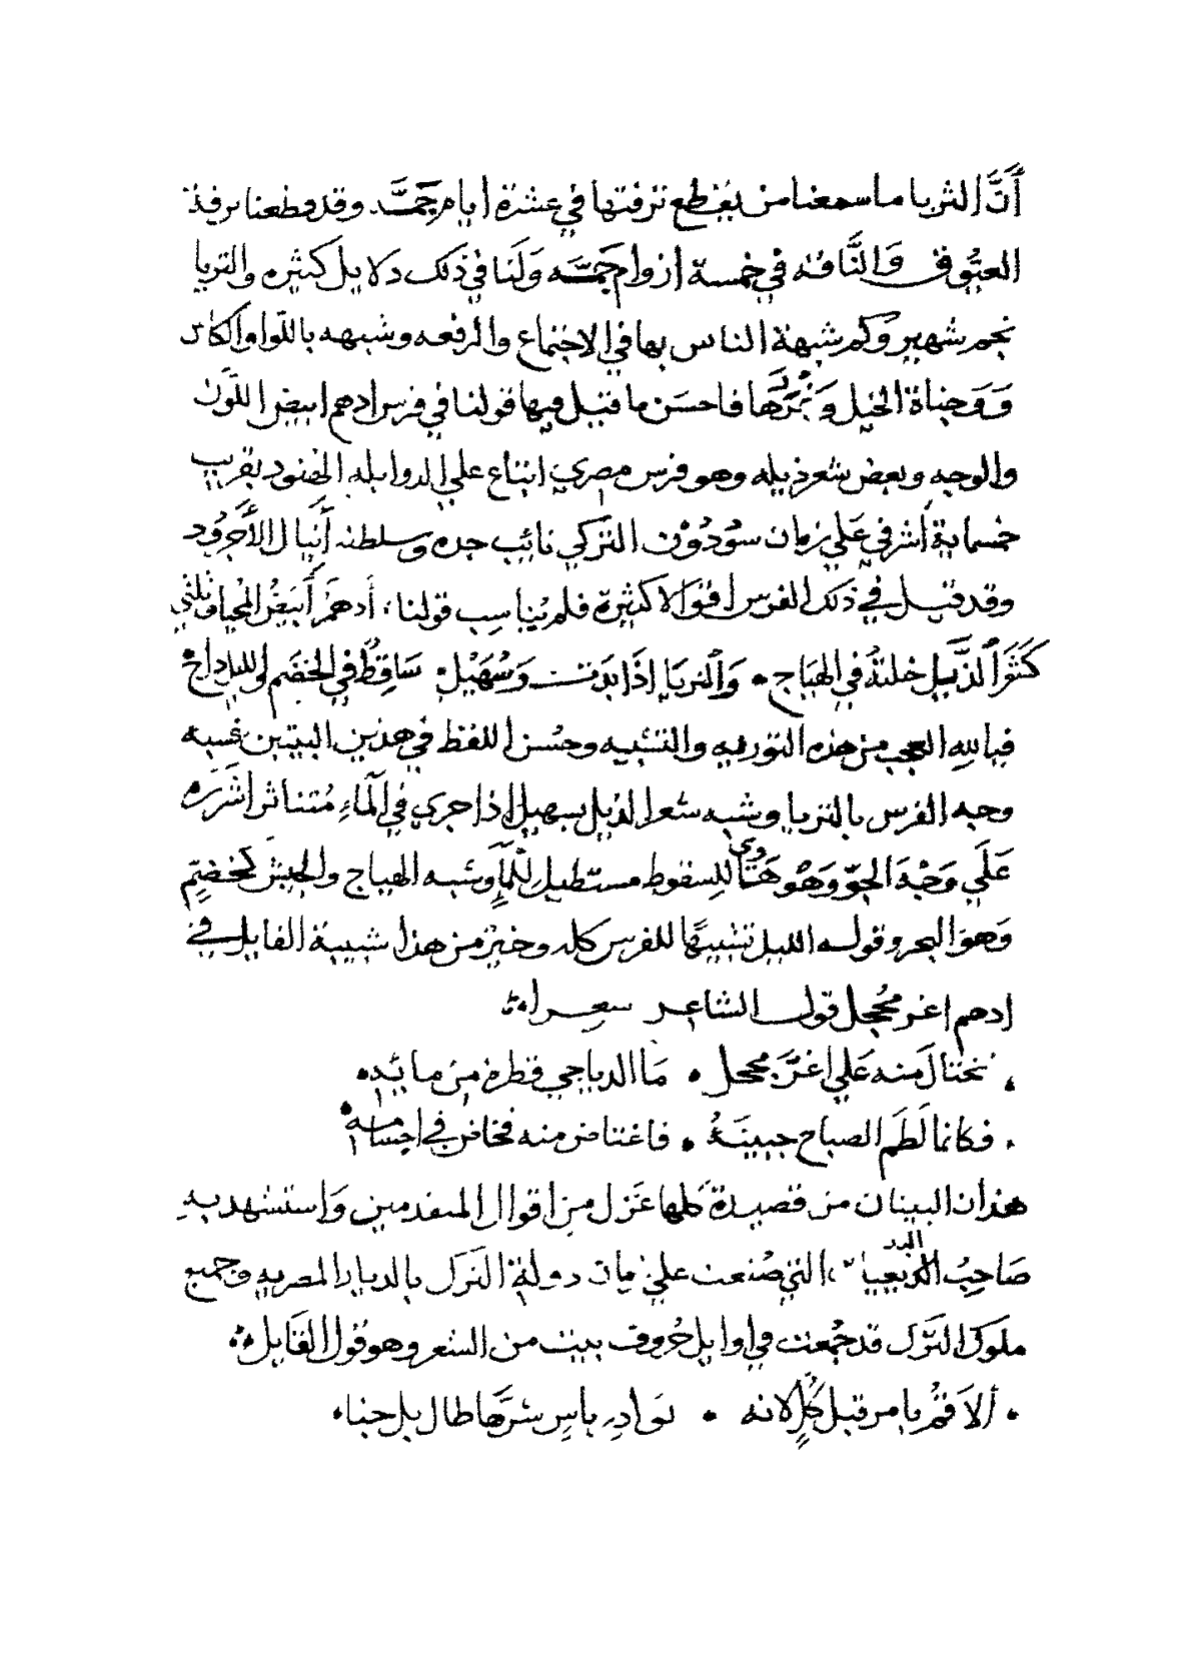 أَنَّ الثريا ما سمعنا من يقطع ترفتها في عشرة ايام جمتَّه وقد قطعنا ترفة
العيّوق وَالنَّاقه في خمسة ازوام جمّه وَلَنا في ذلك دلايل كثيره والتريا
نجم شهير وكم شبهة الناس بها في الاجتماع والرفعه وشبهه باللّوا والكاس
وَوَجناة الخيل وَ فاحسَن ما قيل فيها قولنا في فرس ادهم ابيض اللّون
والوجه وبعض شعر ذيله وهو فرس مصري ابتاع علي الدوابله الهنود بقريب
خمسماية أشرفي عَلي زمان سوُدُوْن التركي نائب جده وسلطنه أَنيال الأَجرُود
وقد قيل في ذلك الفرس اقوالا كثيرة فلم يُناسِب قولنا أدهَمُ أبيَضُ المُحيا وثلثي
كَثَرَ الذَّيل خلتهُ في الهيَاج • وَالثريَا إذَا بَدَت وَسُهَيْل سَاقِطٌ في الخضَم والليل داخ
فيالله العجب من هذه التوريه والتشبيه وحُسن اللفظ في هذين البيتين شبه
وجه الفرس بالتريا وشبه شعر الذيل بسهيل اذا جري في المَاءِ مُتناثر اشَرَره
عَلَي وَجْهَ الجوّ وَهْوَ هَاوي للسقوط مستطيل لِلمَآءِ وشبه الهياج والجيش كخضمٍ
وَهوَ البحر وقوله الليل تشبيهًا للفرس كله وخيْرٌ من هذا شبيبة القايل في
ادهم اغر مُحجل قول الشاعر سعرا
نختال منه عَلي اغَرَّ محجل • مَا الدياجي قطرة مِن مائِه •
• فكانما لَطَمَ الصباح جبينَهُ • فاغتاض منه فخاض في احشائه
هذان البيتان من قصيدة كلها غَزل مِن اقوال المتقدمين وَاستشهد بهِ
صَاحِبُ البديعيا التي صُنعت علي زمان دولة التَرك بالديار المصريه وجميع
ملوك التَّرك قد جُمعت في اوايل حُروف بيت من الشعر وهو قول القَايل
• ألا قُم يا من قبل كُلٍ لانه • نوادِرِ باسٍ شرَّها طال بل جنا •